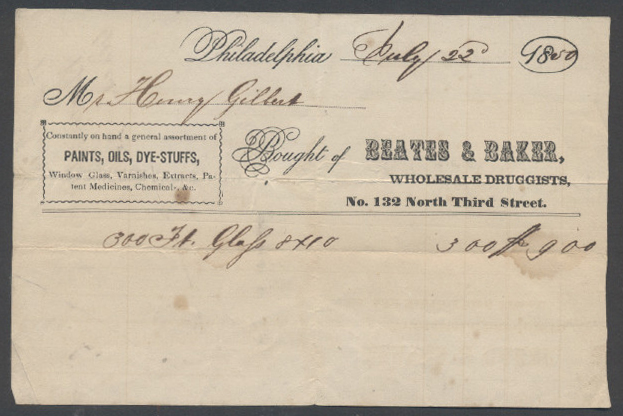 Philadelphia July 22 1850
Mr Henry Gilbert
Constantly on hand a general assortment of
PAINTS, OILS, DYE-STUFFS,
Window Glass, Varnishes, Extracts, Pa-
tent Medicines, Chemicals, &c.
Bought of BEATES & BAKER,
WHOLESALE DRUGGISTS,
No. 132 North Third Street.
300 Ft. Glass 8x10 300 9 00